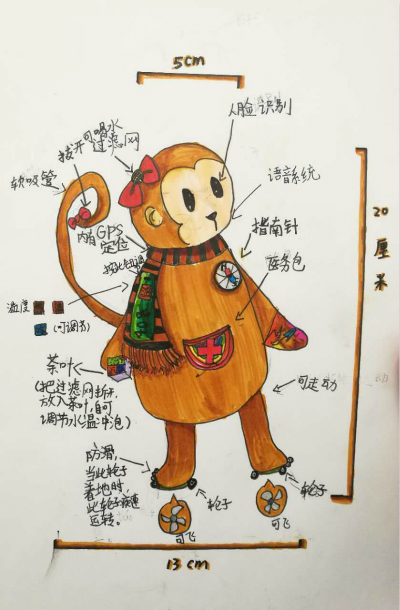 5cm
人脸识别
拨开可喝水
过滤网
软吸管
语音系统
内有GPS
定位
指南针
20
厘
米
医务包
温度
(可调节)
茶叶
(把过滤网拆开,
放入茶叶,即可
调节水温冲泡)
可走动
防滑,
当此轮子
着地时,
此轮子疾速
运转。
轮子
轮子
可飞
可飞
13cm